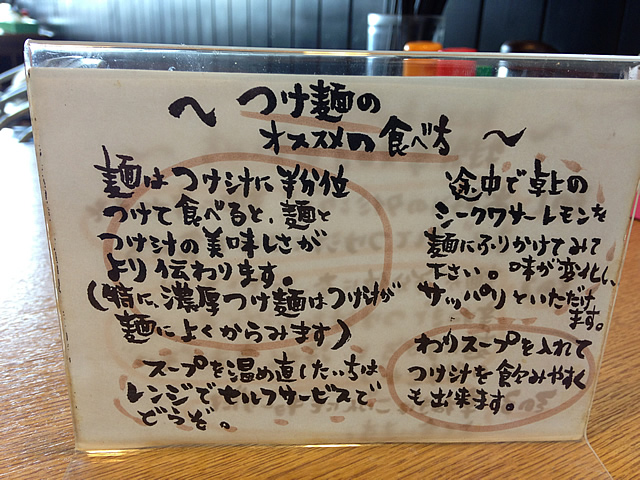 ～つけ麺の
オススメの食べ方～
麺はつけ汁に半分位
つけて食べると、麺と
つけ汁の美味しさが
より伝わります。
(特に、濃厚つけ麺はつけ汁が
麺によくからみます)
スープを温め直したい方は、
レンジでセルフサービスで
どうぞ。
途中で卓上の
シークワサーレモンを
麺にふりかけてみて
下さい。味が変化し、
サッパリといただけ
ます。
わりスープを入れて
つけ汁を飲みやすく
も出来ます。